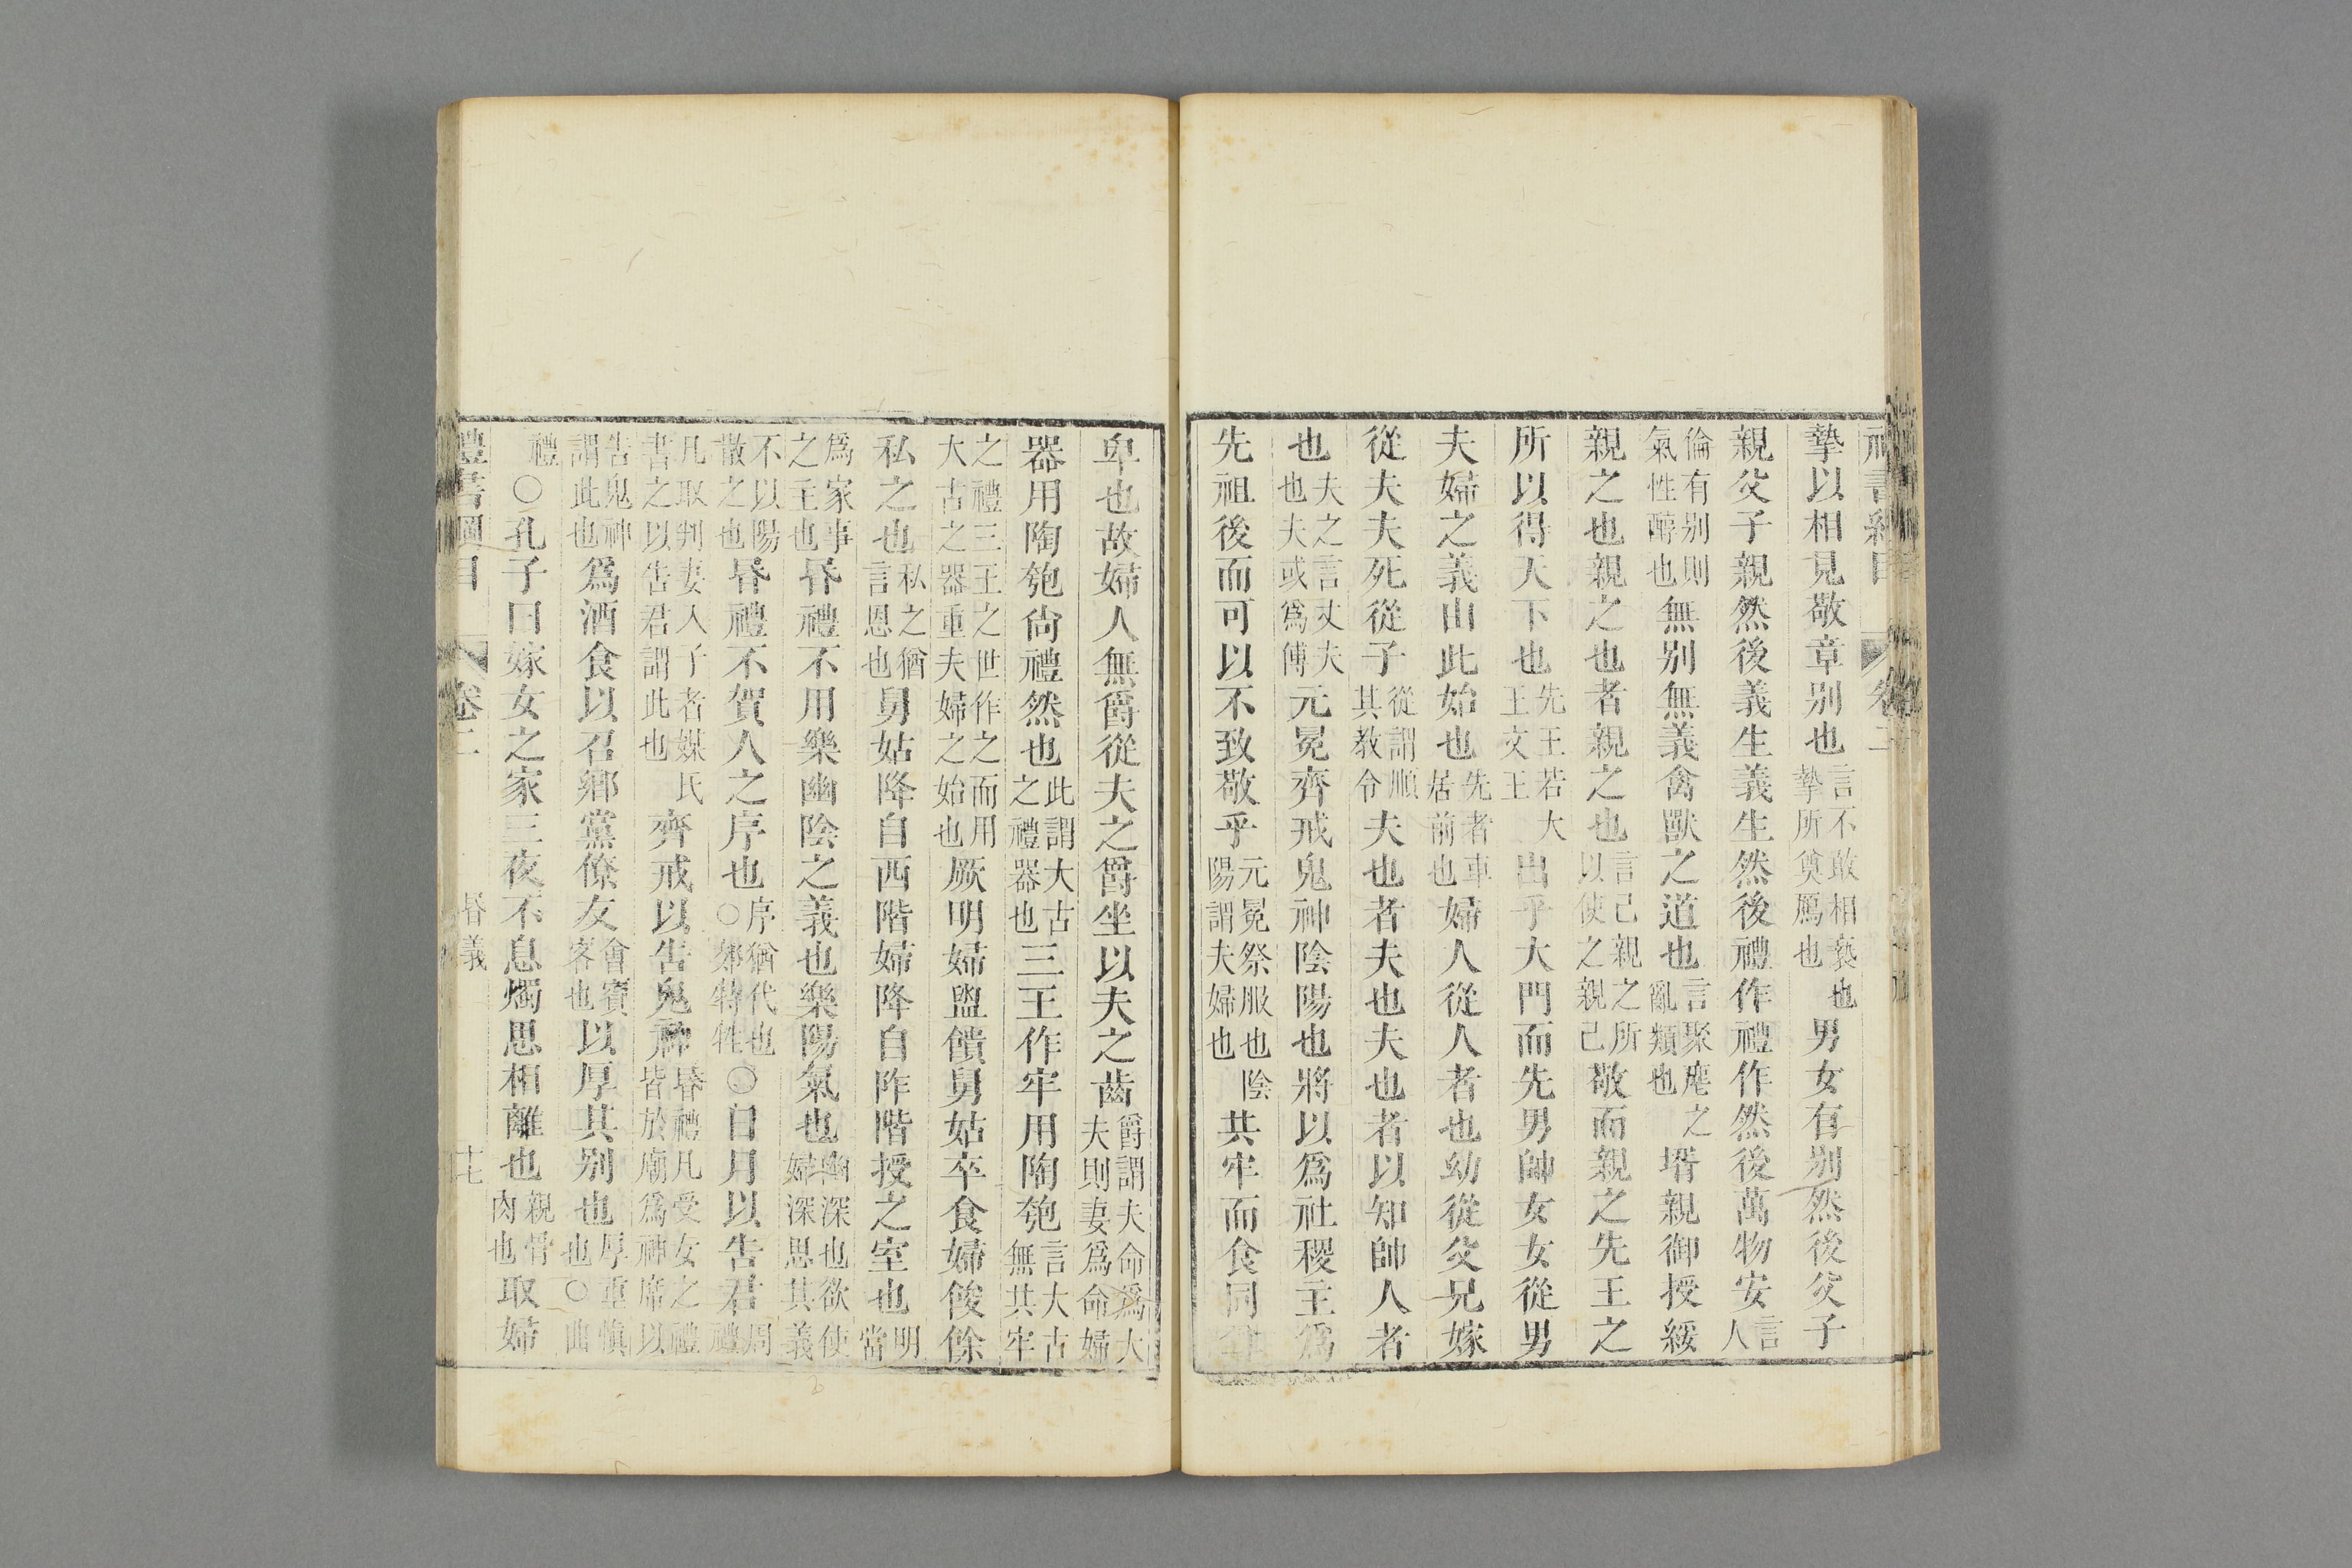 摯以相見敬章别也言不敢相褻也摯所奠鴈也男女有别然後父子
親父子親然後義生義生然後禮作禮作然後萬物安言人
倫有别則氣性醇也無别無義禽獸之道也言聚麀之亂類也壻親御授綏
親之也親之也者親之也言己親之所以使之親己敬而親之先王之
所以得天下也先王若大王文王出乎大門而先男帥女女從男
夫婦之義由此始也先者車居前也婦人從人者也幼從父兄嫁
從夫夫死從子從謂順其教令夫也者夫也夫也者以知帥人者
也夫之言丈夫也夫或爲傅元冕齊戒鬼神陰陽也將以爲社稷主爲
先祖後而可以不致敬乎元冕祭服也陰陽謂夫婦也共牢而食同
卑也故婦人無爵從夫之爵坐以夫之齒爵謂夫命爲大夫則妻爲命婦
器用陶匏尙禮然也此謂大古之禮器也三王作牢用陶匏言大古無共牢
之禮三王之世作之而用大古之器重夫婦之始也厥明婦盥饋舅姑卒食婦餕餘
私之也私之猶言恩也舅姑降自西階婦降自阼階授之室也明當
爲家事之主也昏禮不用樂幽陰之義也樂陽氣也幽深也欲使婦深思其義
不以陽散之也昏禮不賀人之序也序猶代也○郊特牲○日月以告君周禮
凡取判妻入子者媒氏書之以告君謂此也齊戒以告鬼神昏禮凡受女之禮皆於廟爲神席以
告鬼神謂此也爲酒食以召鄉黨僚友會賓客也以厚其别也厚重愼也○曲
禮○孔子曰嫁女之家三夜不息燭思相離也親骨肉也取婦
禮書綱目 卷二 昏義 十七